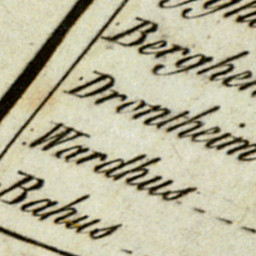 Berghen
Drontheim
Wardhus
Bahus